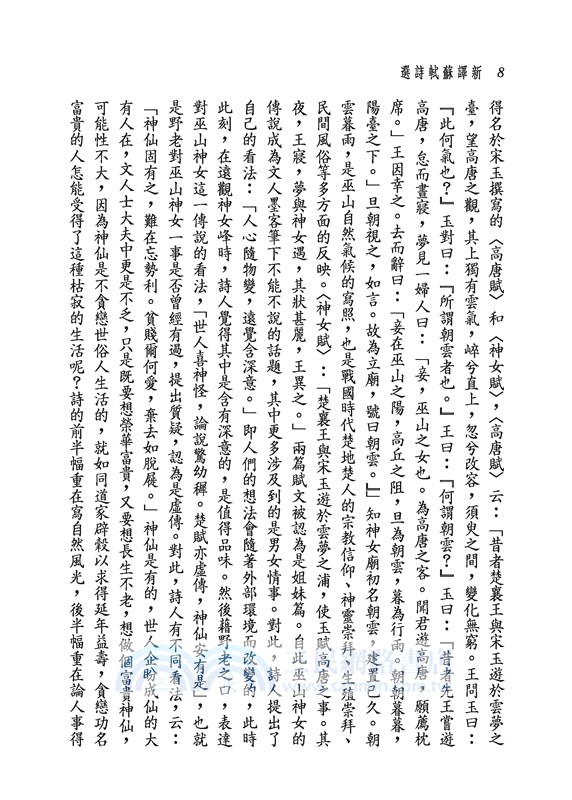 8 新譯蘇軾詩選
得名於宋玉撰寫的〈高唐賦〉和〈神女賦〉,〈高唐賦〉云:「昔者楚襄王與宋玉遊於雲夢之
臺,望高唐之觀,其上獨有雲氣,崪兮直上,忽兮改容,須臾之間,變化無窮。王問玉曰:
『此何氣也?』玉對曰:『所謂朝雲者也。』王曰:『何謂朝雲?』玉曰:『昔者先王嘗遊
高唐,怠而晝寢,夢見一婦人曰:「妾,巫山之女也。為高唐之客。聞君遊高唐,願薦枕
席。」王因幸之。去而辭曰:「妾在巫山之陽,高丘之阻,旦為朝雲,暮為行雨。朝朝暮暮,
陽臺之下。」旦朝視之,如言。故為立廟,號曰朝雲。』」知神女廟初名朝雲,建置已久。朝
雲暮雨,是巫山自然氣候的寫照,也是戰國時代楚地楚人的宗教信仰、神靈崇拜、生殖崇拜、
民間風俗等多方面的反映。〈神女賦〉:「楚襄王與宋玉遊於雲夢之浦,使玉賦高唐之事。其
夜,王寢,夢與神女遇,其狀甚麗,王異之。」兩篇賦文被認為是姐妹篇。自此巫山神女的
傳說成為文人墨客筆下不能不說的話題,其中更多涉及到的是男女情事。對此,詩人提出了
自己的看法:「人心隨物變,遠覺含深意。」即人們的想法會隨著外部環境而改變的,此時
此刻,在遠觀神女峰時,詩人覺得其中是含有深意的,是值得品味。然後藉野老之口,表達
對巫山神女這一傳說的看法,「世人喜神怪,論說驚幼穉。楚賦亦虛傳,神仙安有是」,也就
是野老對巫山神女一事是否曾經有過,提出質疑,認為是虛傳。對此,詩人有不同看法,云:
「神仙固有之,難在忘勢利。貧賤爾何愛,棄去如脫屣。」神仙是有的,世人企盼成仙的大
有人在,文人士大夫中更是不乏,只是既要想榮華富貴,又要想長生不老,想做個富貴神仙,
可能性不大,因為神仙是不貪戀世俗人生活的,就如同道家辟穀以求得延年益壽,貪戀功名
富貴的人怎能受得了這種枯寂的生活呢?詩的前半幅重在寫自然風光,後半幅重在論人事得